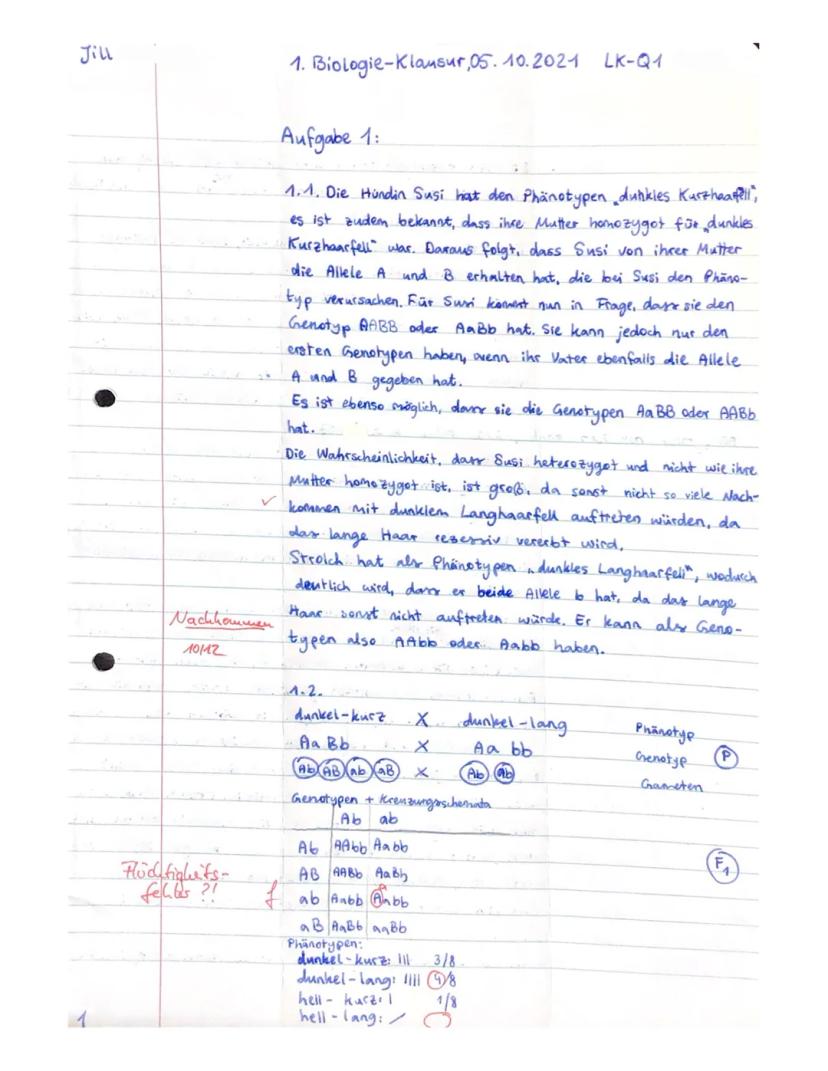 Jill
1. Biologie-Klausur, 05.10.2021 LK-Q1
Aufgabe 1:
1.1. Die Hündin Susi hat den Phänotypen „dunkles Kurzhaarfell",
es ist zudem bekannt, dass ihre Mutter homozygot für „dunkles
Kurzhaarfell" war. Daraus folgt, dass Susi von ihrer Mutter
die Allele A und B erhalten hat, die bei Susi den Phäno-
typ verursachen. Für Susi kommt nun in Frage, dass sie den
Genotyp AABB oder AaBb hat. Sie kann jedoch nur den
ersten Genotypen haben, wenn ihr Vater ebenfalls die Allele
A und B gegeben hat.
Es ist ebenso möglich, dass sie die Genotypen AaBB oder AABb
hat.
Die Wahrscheinlichkeit, dass Susi heterozygot und nicht wie ihre
Mutter homozygot ist, ist groß, da sonst nicht so viele Nach-
✓ kommen mit dunklem Langhaarfell auftreten würden, da
das lange Haar rezessiv vererbt wird.
Strolch hat als Phänotypen „dunkles Langhaarfell", wodurch
deutlich wird, dass er beide Allele b hat, da das lange
Nachkommen Haar sonst nicht auftreten würde. Er kann als Geno-
10/12 typen also AAbb oder Aabb haben.
1.2.
dunkel-kurz X dunkel-lang Phänotyp
AaBb X Aa bb Genotyp P
Ab AB ab aB X Ab ab Gameten
Genotypen + Kreuzungsschemata
Ab ab
Ab AAbb Aabb
AB AABb AaBb F1
Flüchtigkeits-
fehler ?! f ab Aabb Aabb
aB AaBb aaBb
Phänotypen:
dunkel-kurz: III 3/8
dunkel-lang: IIII 4/8
hell-kurz: I 1/8
hell-lang: /
1